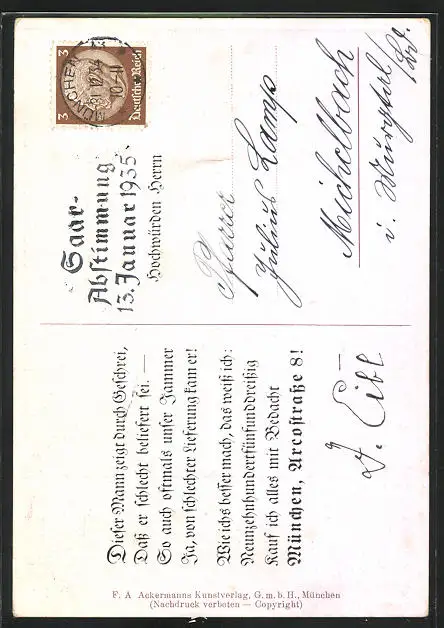 Dieser Mann zeigt durch Geschrei,
Daß er schlecht beliefert sei. —
So auch oftmals unser Jammer
Ja, von schlechter Lieferung kam er!
Wie ichs besser mach, das weiß ich:
Neunzehnhundertfünfunddreißig
Kauf ich alles mit Bedacht
München, Arcostraße 8!
J. Eibl
Saar-
Abstimmung
13. Januar 1935
Hochwürden Herrn
3 3
Deutsches Reich
MÜNCHEN
31.12.34
10-11
Pfarrer
Julius Lamp
Michelbach
i. Württbg.
F. A Ackermanns Kunstverlag, G. m. b. H., München
(Nachdruck verboten — Copyright)